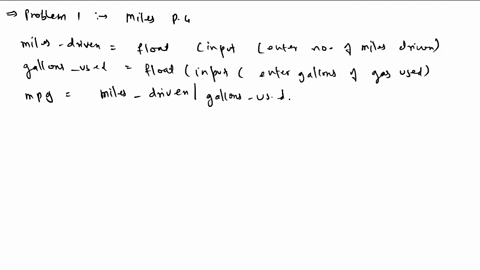 ⇒ Problem 1 :→ Miles P.G
miles-driven = float (input (enter no. of miles driven)
gallons-used = float (input ( enter gallons of gas used)
mpg = miles-driven / gallons-used.